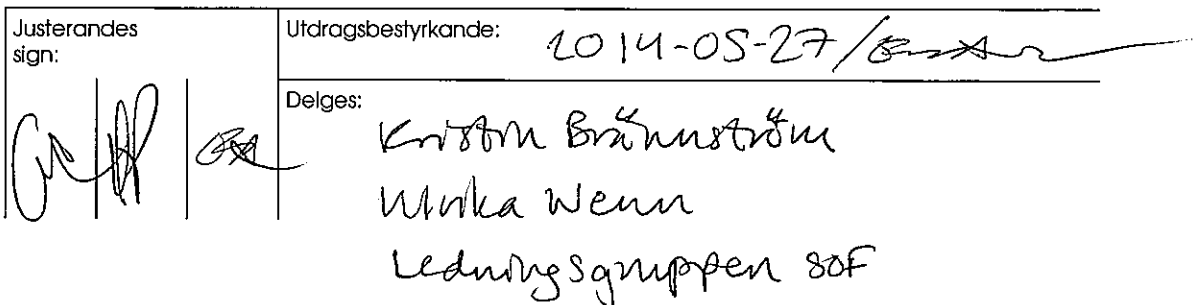 Justerandes
sign:
Utdragsbestyrkande: 2014-05-27/
Delges:
Kristin Brännström
Ulrika Wenn
Ledningsgruppen SOF